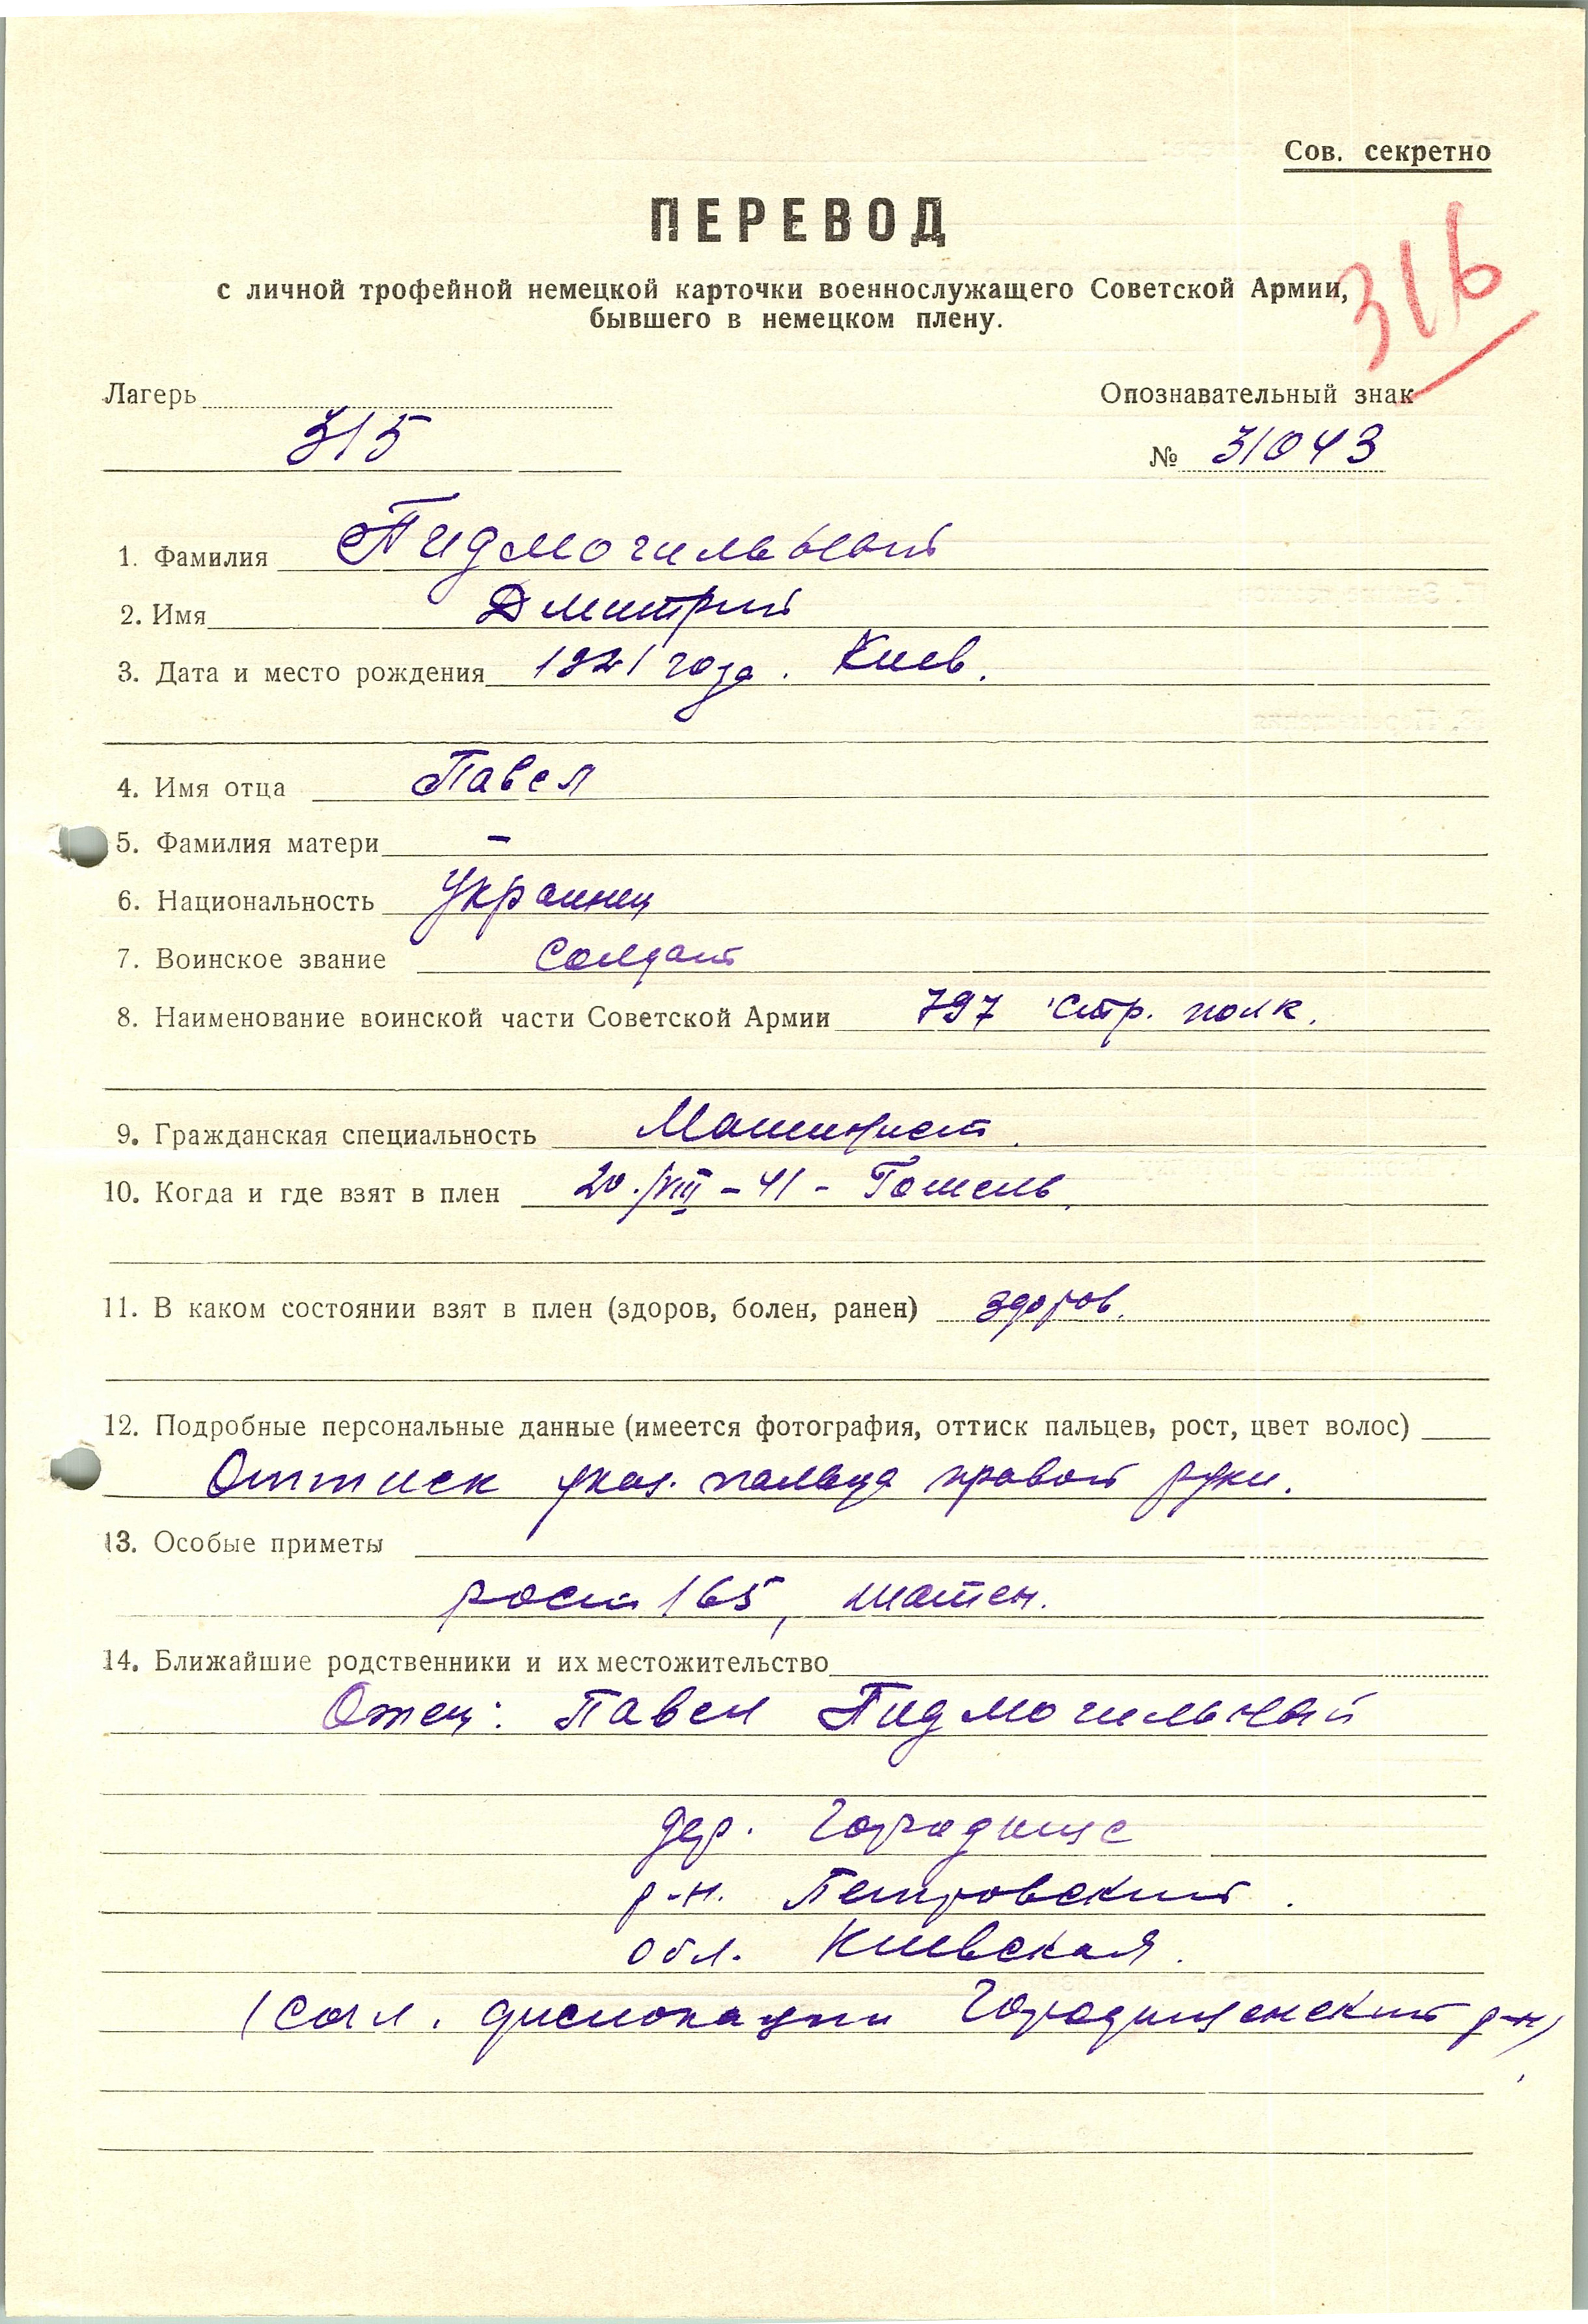 Сов. секретно
ПЕРЕВОД
316
с личной трофейной немецкой карточки военнослужащего Советской Армии,
бывшего в немецком плену.
Лагерь Опознавательный знак
315 № 31043
1. Фамилия Пидмогильный
2. Имя Дмитрий
3. Дата и место рождения 1921 года. Киев.
4. Имя отца Павел
5. Фамилия матери –
6. Национальность Украинец
7. Воинское звание Солдат
8. Наименование воинской части Советской Армии 797 стр. полк.
9. Гражданская специальность Машинист.
10. Когда и где взят в плен 20./VIII – 41 – Гомель.
11. В каком состоянии взят в плен (здоров, болен, ранен) здоров.
12. Подробные персональные данные (имеется фотография, оттиск пальцев, рост, цвет волос)
Оттиск указ. пальца правой руки.
13. Особые приметы
рост 165, шатен.
14. Ближайшие родственники и их местожительство
Отец: Павел Пидмогильный
дер. Городище
р-н. Петровский.
обл. Киевская.
(согл. дислокации Городищенский р-н)